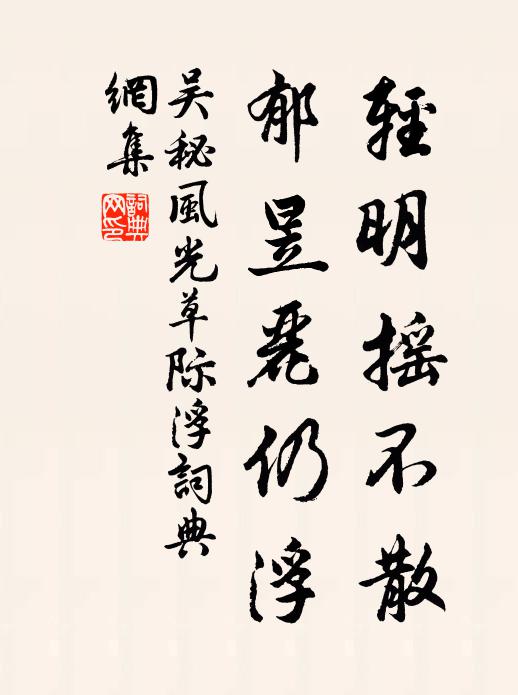 輕明摇不散
郁昱麗仍浮
吴秘風光草际浮詞典
網集
詞典
网印